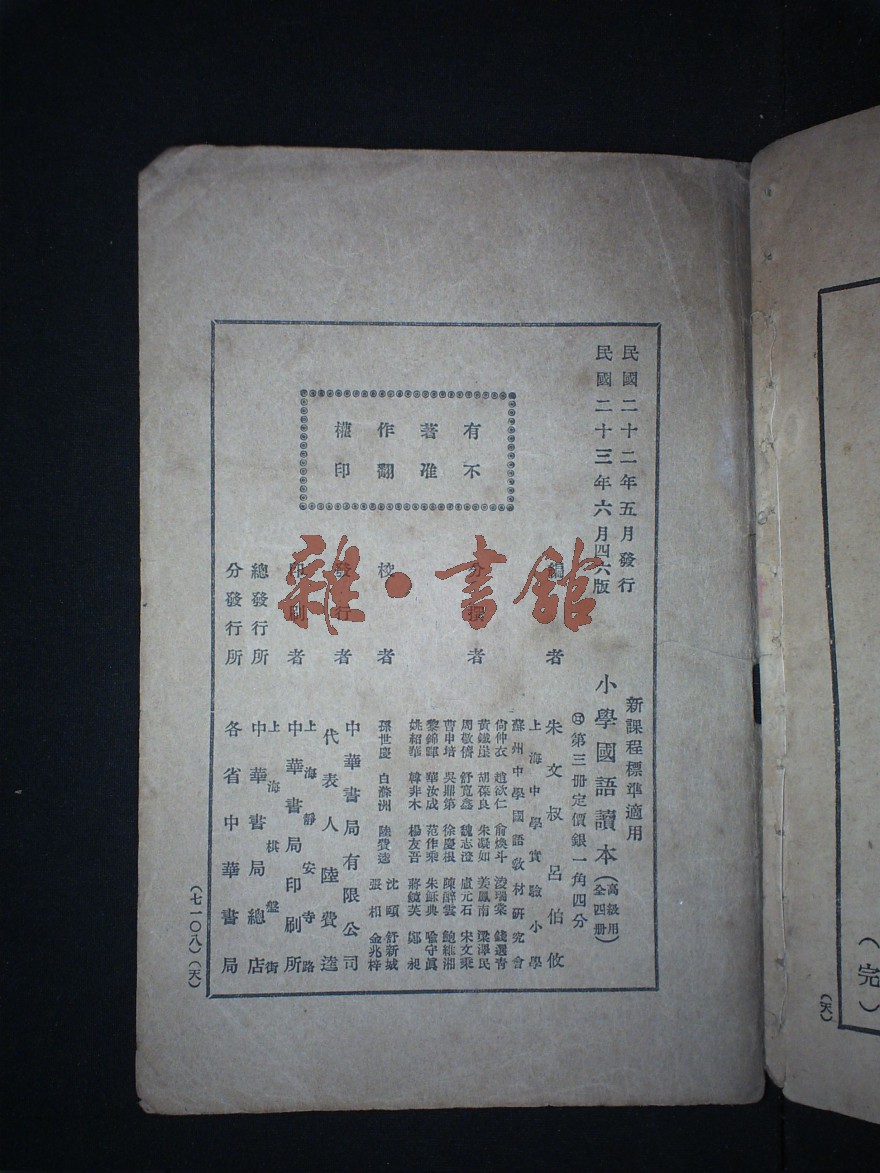 民國二十二年五月發行
民國二十三年六月四六版
新課程標準適用
小學國語讀本(高級用 全四冊)
第三冊定價銀一角四分
有不
著准
作翻
權印
編者
朱文叔 呂伯攸
分撰者
上海中學實驗小學
蘇州中學國語教材研究會
尙仲衣 趙欲仁 俞煥斗 淩瑞棠 錢選靑
黃鐵崖 胡葆良 朱凝如 姜鳳南 梁漂民
周敬儕 舒寬鑫 魏志澄 盧元石 宋文秉
曹申培 吳鼎第 徐慶根 陳醉雲 鮑維湘
黎錦暉 華汝成 范作乘 朱穌典 喻守眞
姚紹華 韓非木 楊友吾 蔣鏡芙 鄭昶
校者
孫世慶 白滌洲 陸費逵 沈頤 舒新城
張相 金兆梓
發行者
中華書局有限公司
代表人陸費逵
印刷者
上海靜安寺路
中華書局印刷所
總發行所
上海棋盤街
中華書局總店
分發行所
各省中華書局
(七一〇八)(天)
雜·書館
(完)
(天)